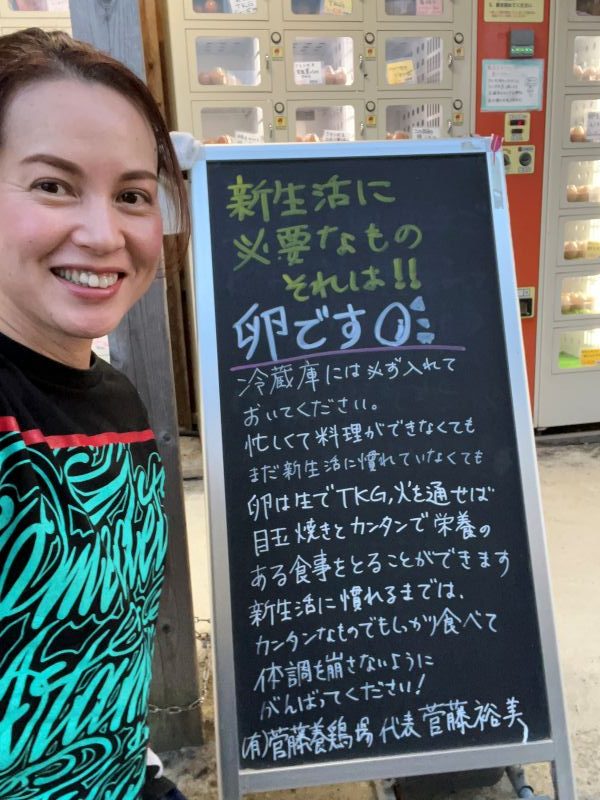 新生活に
必要なもの
それは!!
卵です
冷蔵庫には必ず入れて
おいてください。
忙しくて料理ができなくても
まだ新生活に慣れていなくても
卵は生でTKG,火を通せば
目玉焼きとカンタンで栄養の
ある食事をとることができます
新生活に慣れるまでは、
カンタンなものでもしっかり食べて
体調を崩さないように
がんばってください!
(有)菅藤養鶏場 代表 菅藤裕美